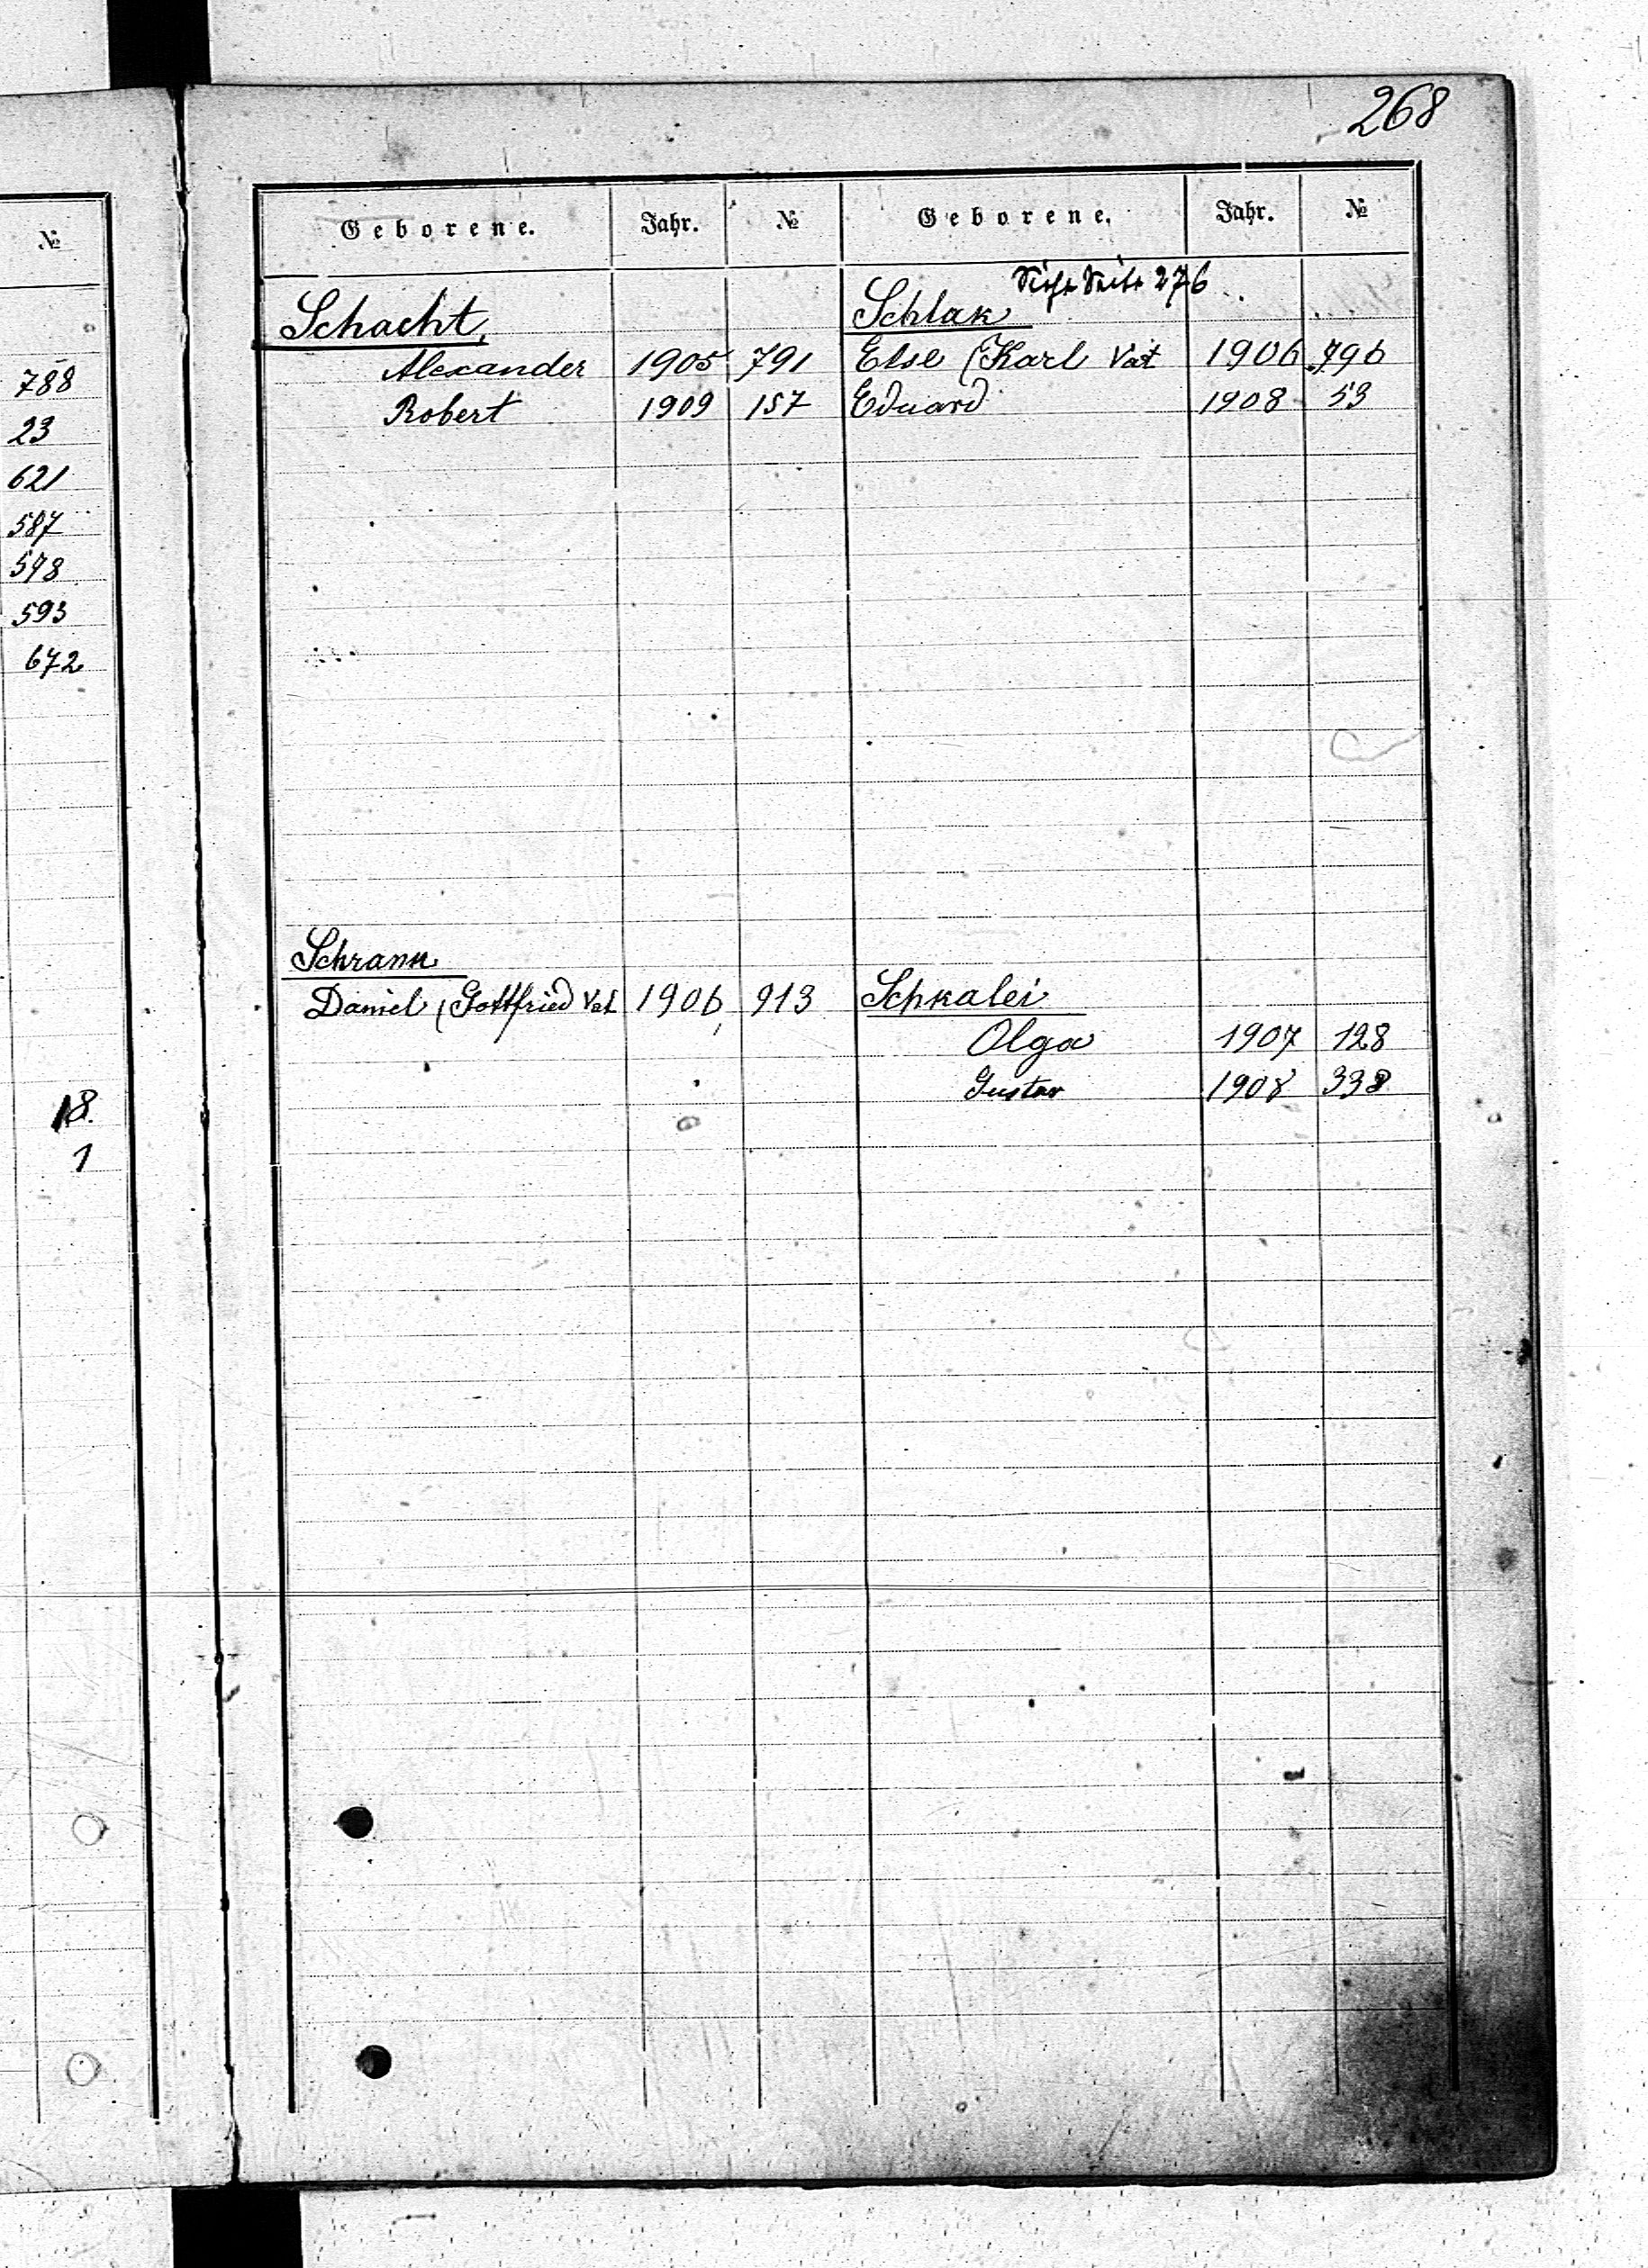 268
№
788
23
621
587
598
593
672
18.
1
Geborene. Jahr. № Geborene. Jahr. №
Schacht,
Alexander 1905 791
Robert 1909 157
Schrann
Daniel (Gottfried Vat 1906 913
Siehe Seite 276
Schlak
Else (Karl Vat 1906 796
Eduard 1908 53
Schkalei
Olga 1907 128
Gustav 1908 338